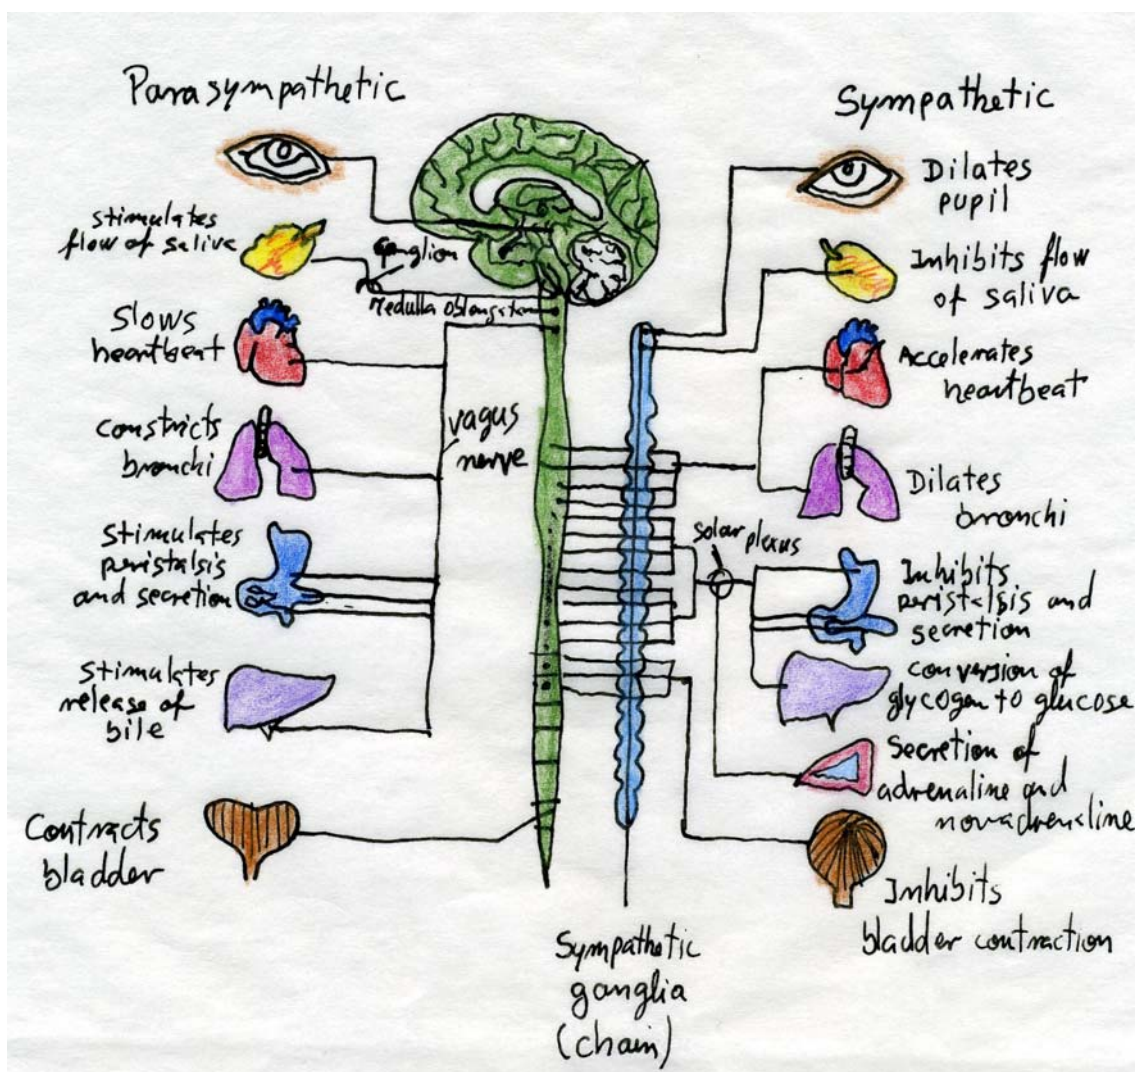 Parasympathetic
stimulates
flow of saliva
Slows
heartbeat
constricts
bronchi
Stimulates
peristalsis
and secretion
Stimulates
release of
bile
Contracts
bladder
Ganglion
Medulla Oblongata
vagus
nerve
solar plexus
Sympathetic
ganglia
(chain)
Sympathetic
Dilates
pupil
Inhibits flow
of saliva
Accelerates
heartbeat
Dilates
bronchi
Inhibits
peristalsis and
secretion
conversion of
glycogen to glucose
Secretion of
adrenaline and
noradrenaline
Inhibits
bladder contraction